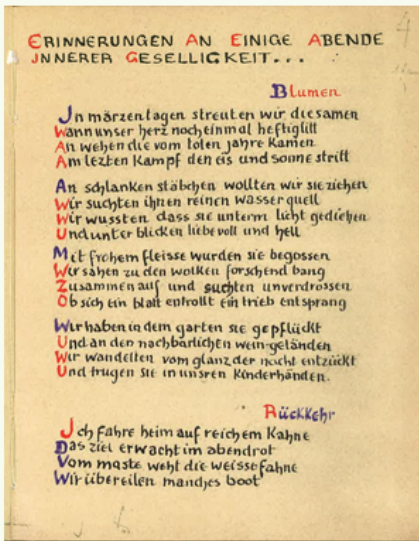 ERINNERUNGEN AN EINIGE ABENDE
INNERER GESELLIGKEIT...
Blumen
In märzentagen streuten wir die samen
Wann unser herz noch einmal heftig litt
An wehen die vom toten jahre kamen
Am lezten kampf den eis und sonne stritt
An schlanken stäbchen wollten wir sie ziehen
Wir suchten ihnen reinen wasserquell
Wir wussten dass sie unterm licht gediehen
Und unter blicken liebevoll und hell
Mit frohem fleisse wurden sie begossen
Wir sahen zu den wolken forschend bang
Zusammen auf und suchten unverdrossen
Ob sich ein blatt entrollt ein trieb entsprang
Wir haben in dem garten sie gepflückt
Und an den nachbarlichen wein-geländen
Wir wandelten vom glanz der nacht entzückt
Und trugen sie in unsren kinderhänden.
Rückkehr
Ich fahre heim auf reichem kahne
Das ziel erwacht im abendrot
Vom maste weht die weisse fahne
Wir übereilen manches boot